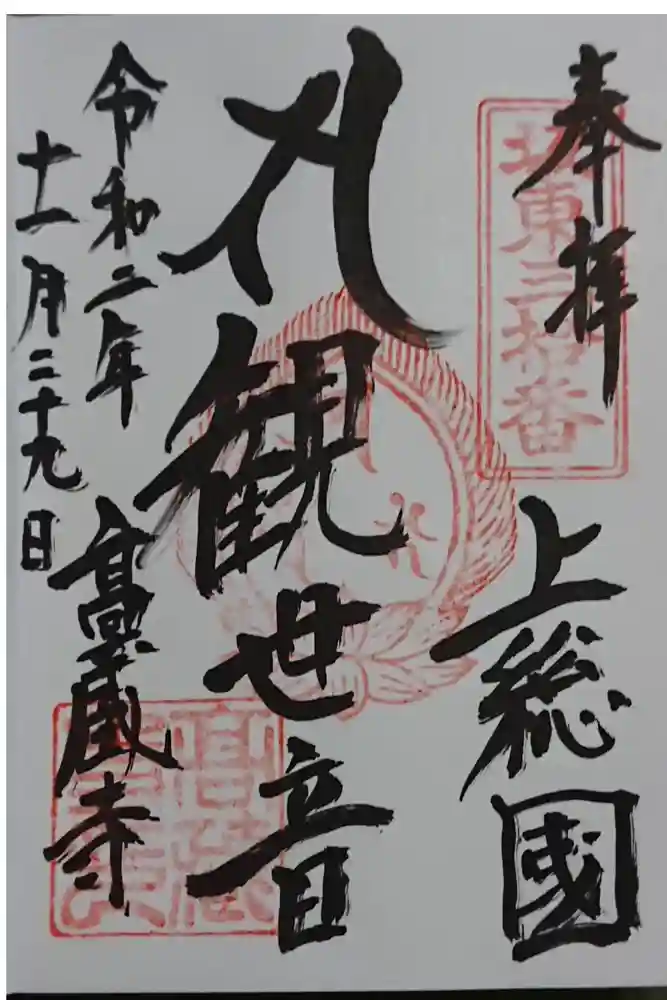 奉拝
坂東三拾番
上総國
観世音
高蔵寺
令和二年
十一月二十九日